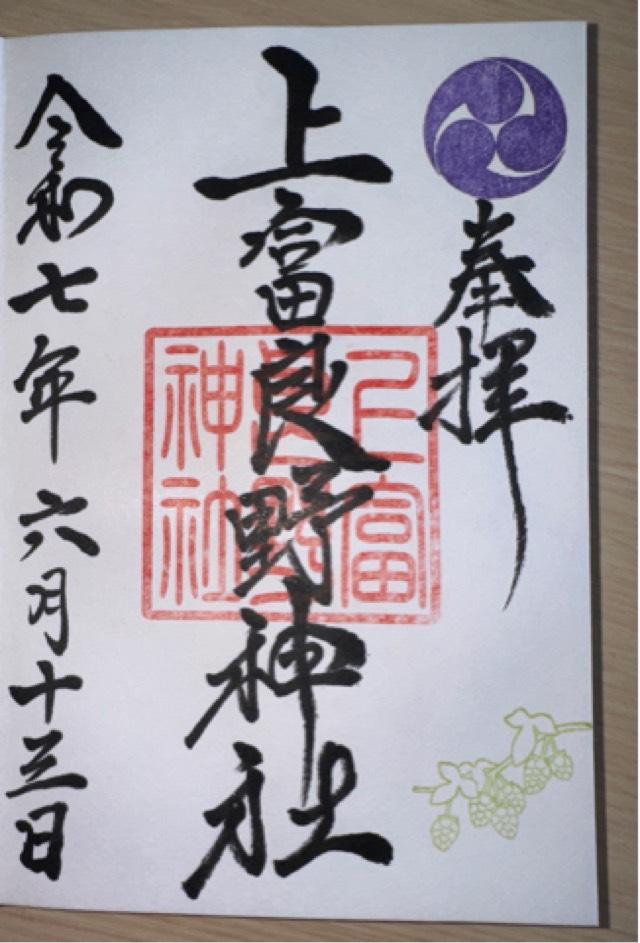 奉拝
上富良野神社
上富良野神社
令和七年六月十三日